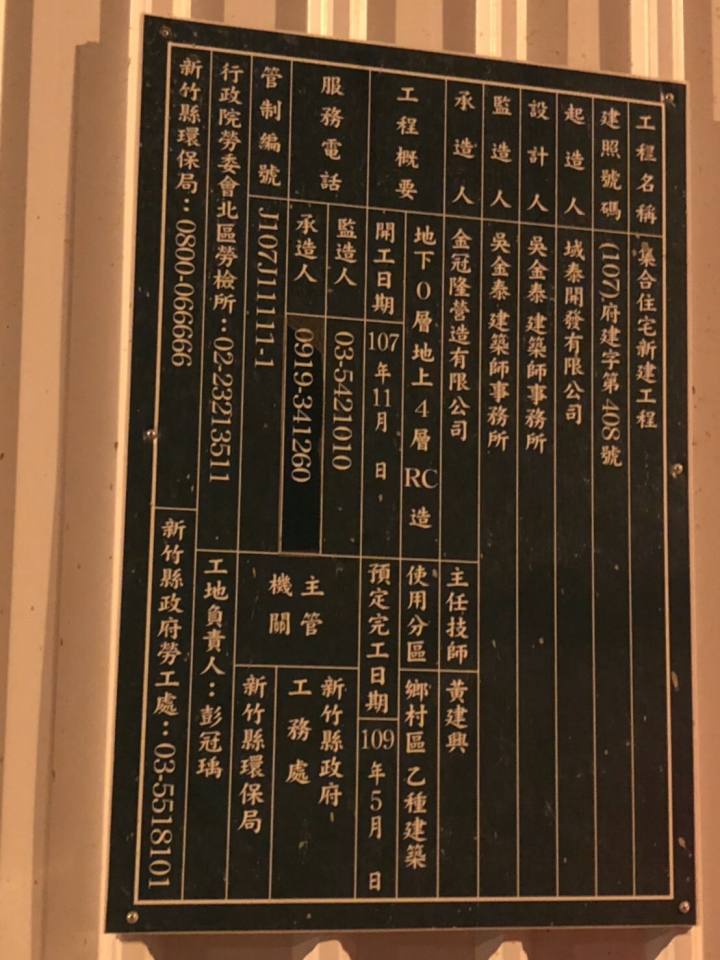 工程名稱 集合住宅新建工程
建照號碼 (107)府建字第408號
起造人 域泰開發有限公司
設計人 吳金泰 建築師事務所
監造人 吳金泰 建築師事務所
承造人 金冠隆營造有限公司 主任技師 黃建興
工程概要 地下0層地上4層RC造 使用分區 鄉村區 乙種建築
開工日期 107年11月 日 預定完工日期 109年5月 日
服務電話 監造人 03-5421010
承造人 0919-341260
主管機關 新竹縣政府
工務處
新竹縣環保局
管制編號 J107J11111-1
行政院勞委會北區勞檢所：02-23213511 工地負責人：彭冠瑀
新竹縣環保局：0800-066666 新竹縣政府勞工處：03-5518101